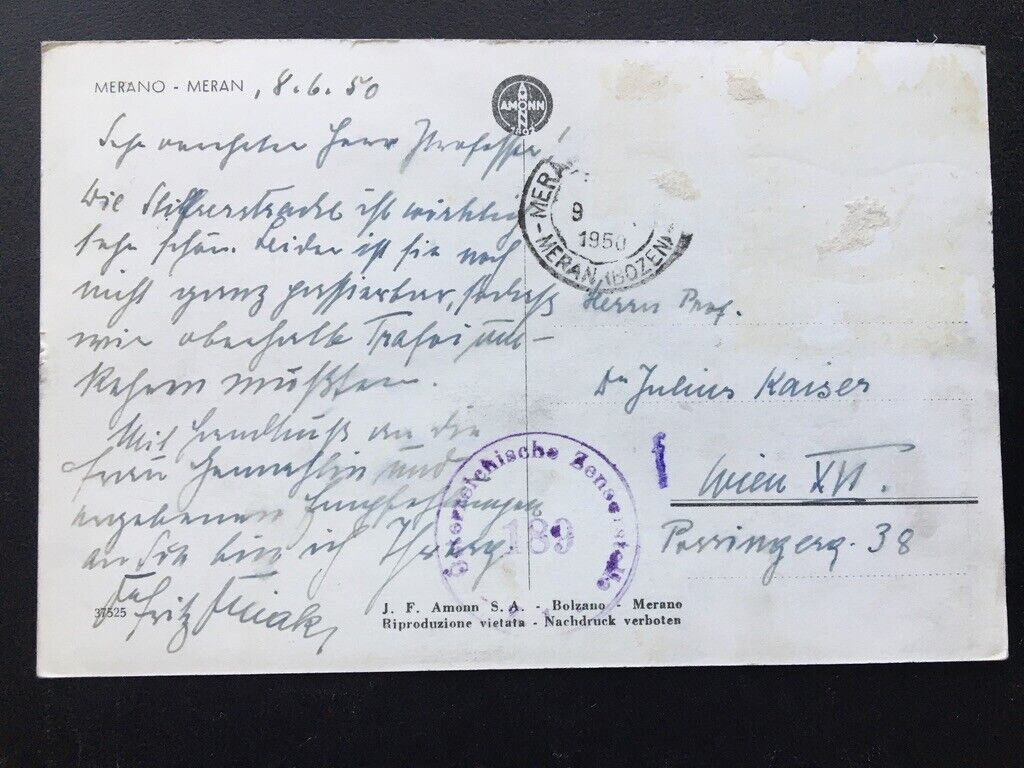 MERANO - MERAN , 8.6.50
AMONN
Sehr verehrter Herr Professor!
Die Stilfserstraße ist wirklich
sehr schön. Leider ist sie noch
nicht ganz passierbar, sodaß
wir oberhalb Trafoi um-
kehren mußten.
Mit Handkuß an die
Frau Gemahlin und
ergebenen Empfehlungen
an Sie bin ich Ihr
Fritz
MERANO
9
1950
- MERAN (BOZEN)
Herrn Prof.
Dr Julius Kaiser
Wien XVI.
Perringerg. 38
Österreichische Zensurstelle
189
f
37525
J. F. Amonn S. A. - Bolzano - Merano
Riproduzione vietata - Nachdruck verboten